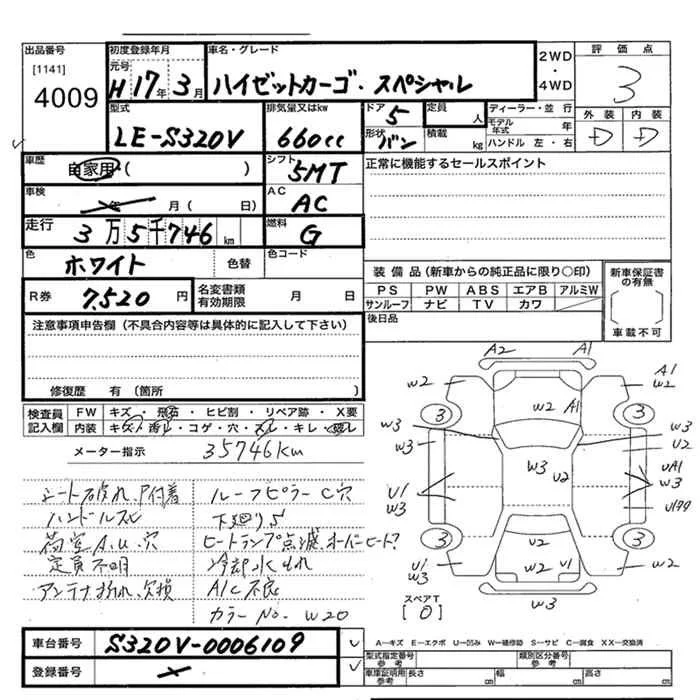 出品番号
[1141]
4009
初度登録年月
元号
H17年3月
車名・グレード
ハイゼットカーゴ・スペシャル
2WD
・
4WD
評価点
3
型式
LE-S320V
排気量又はkw
660cc
ドア
5
形状
バン
定員
人
積載
kg
ディーラー・並行
モデル年式 年
ハンドル 左・右
外装 内装
D D
車歴
自家用・( )
シフト
5MT
正常に機能するセールスポイント
車検
年 月( 日)
AC
AC
走行
3万5千746km
燃料
G
色
ホワイト
色替
色コード
R券
7,520円
名変書類
有効期限
月 日
装備品(新車からの純正品に限り○印)
PS PW ABS エアB アルミW
サンルーフ ナビ TV カワ
後日品
新車保証書
の有無
車載不可
注意事項申告欄(不具合内容等は具体的に記入して下さい)
修復歴 有(箇所 )
検査員
記入欄
FW キズ・飛石・ヒビ割・リペア跡・X要
内装 キズ・汚レ・コゲ・穴・スレ・キレ・臭レ
メーター指示 35746km
シート破れ、P付着
ハンドルスレ
荷室A.U.穴
定員不明
アンテナ折れ、欠損
ルーフピラーC穴
下廻りS
ヒートランプ点滅、オーバーヒート?
冷却水もれ
A/C不良
カラーNo. W20
A2 A1
w2 A1 w2
w2 A1
3 3
w3 w3
w3 U2
w3 U2
U1 w3
UA1 w3
U1
3 3
w2 w2
U1 w3
w2 U1
w2
w3
スペアT
[0]
車台番号
S320V-0006109
登録番号
A―キズ E―エクボ U―凹み W―補修跡 S―サビ C―腐食 XX―交換済
型式指定番号
参考
類別区分番号
参考
車庫証明用
参考
長さ cm 幅 cm 高さ cm